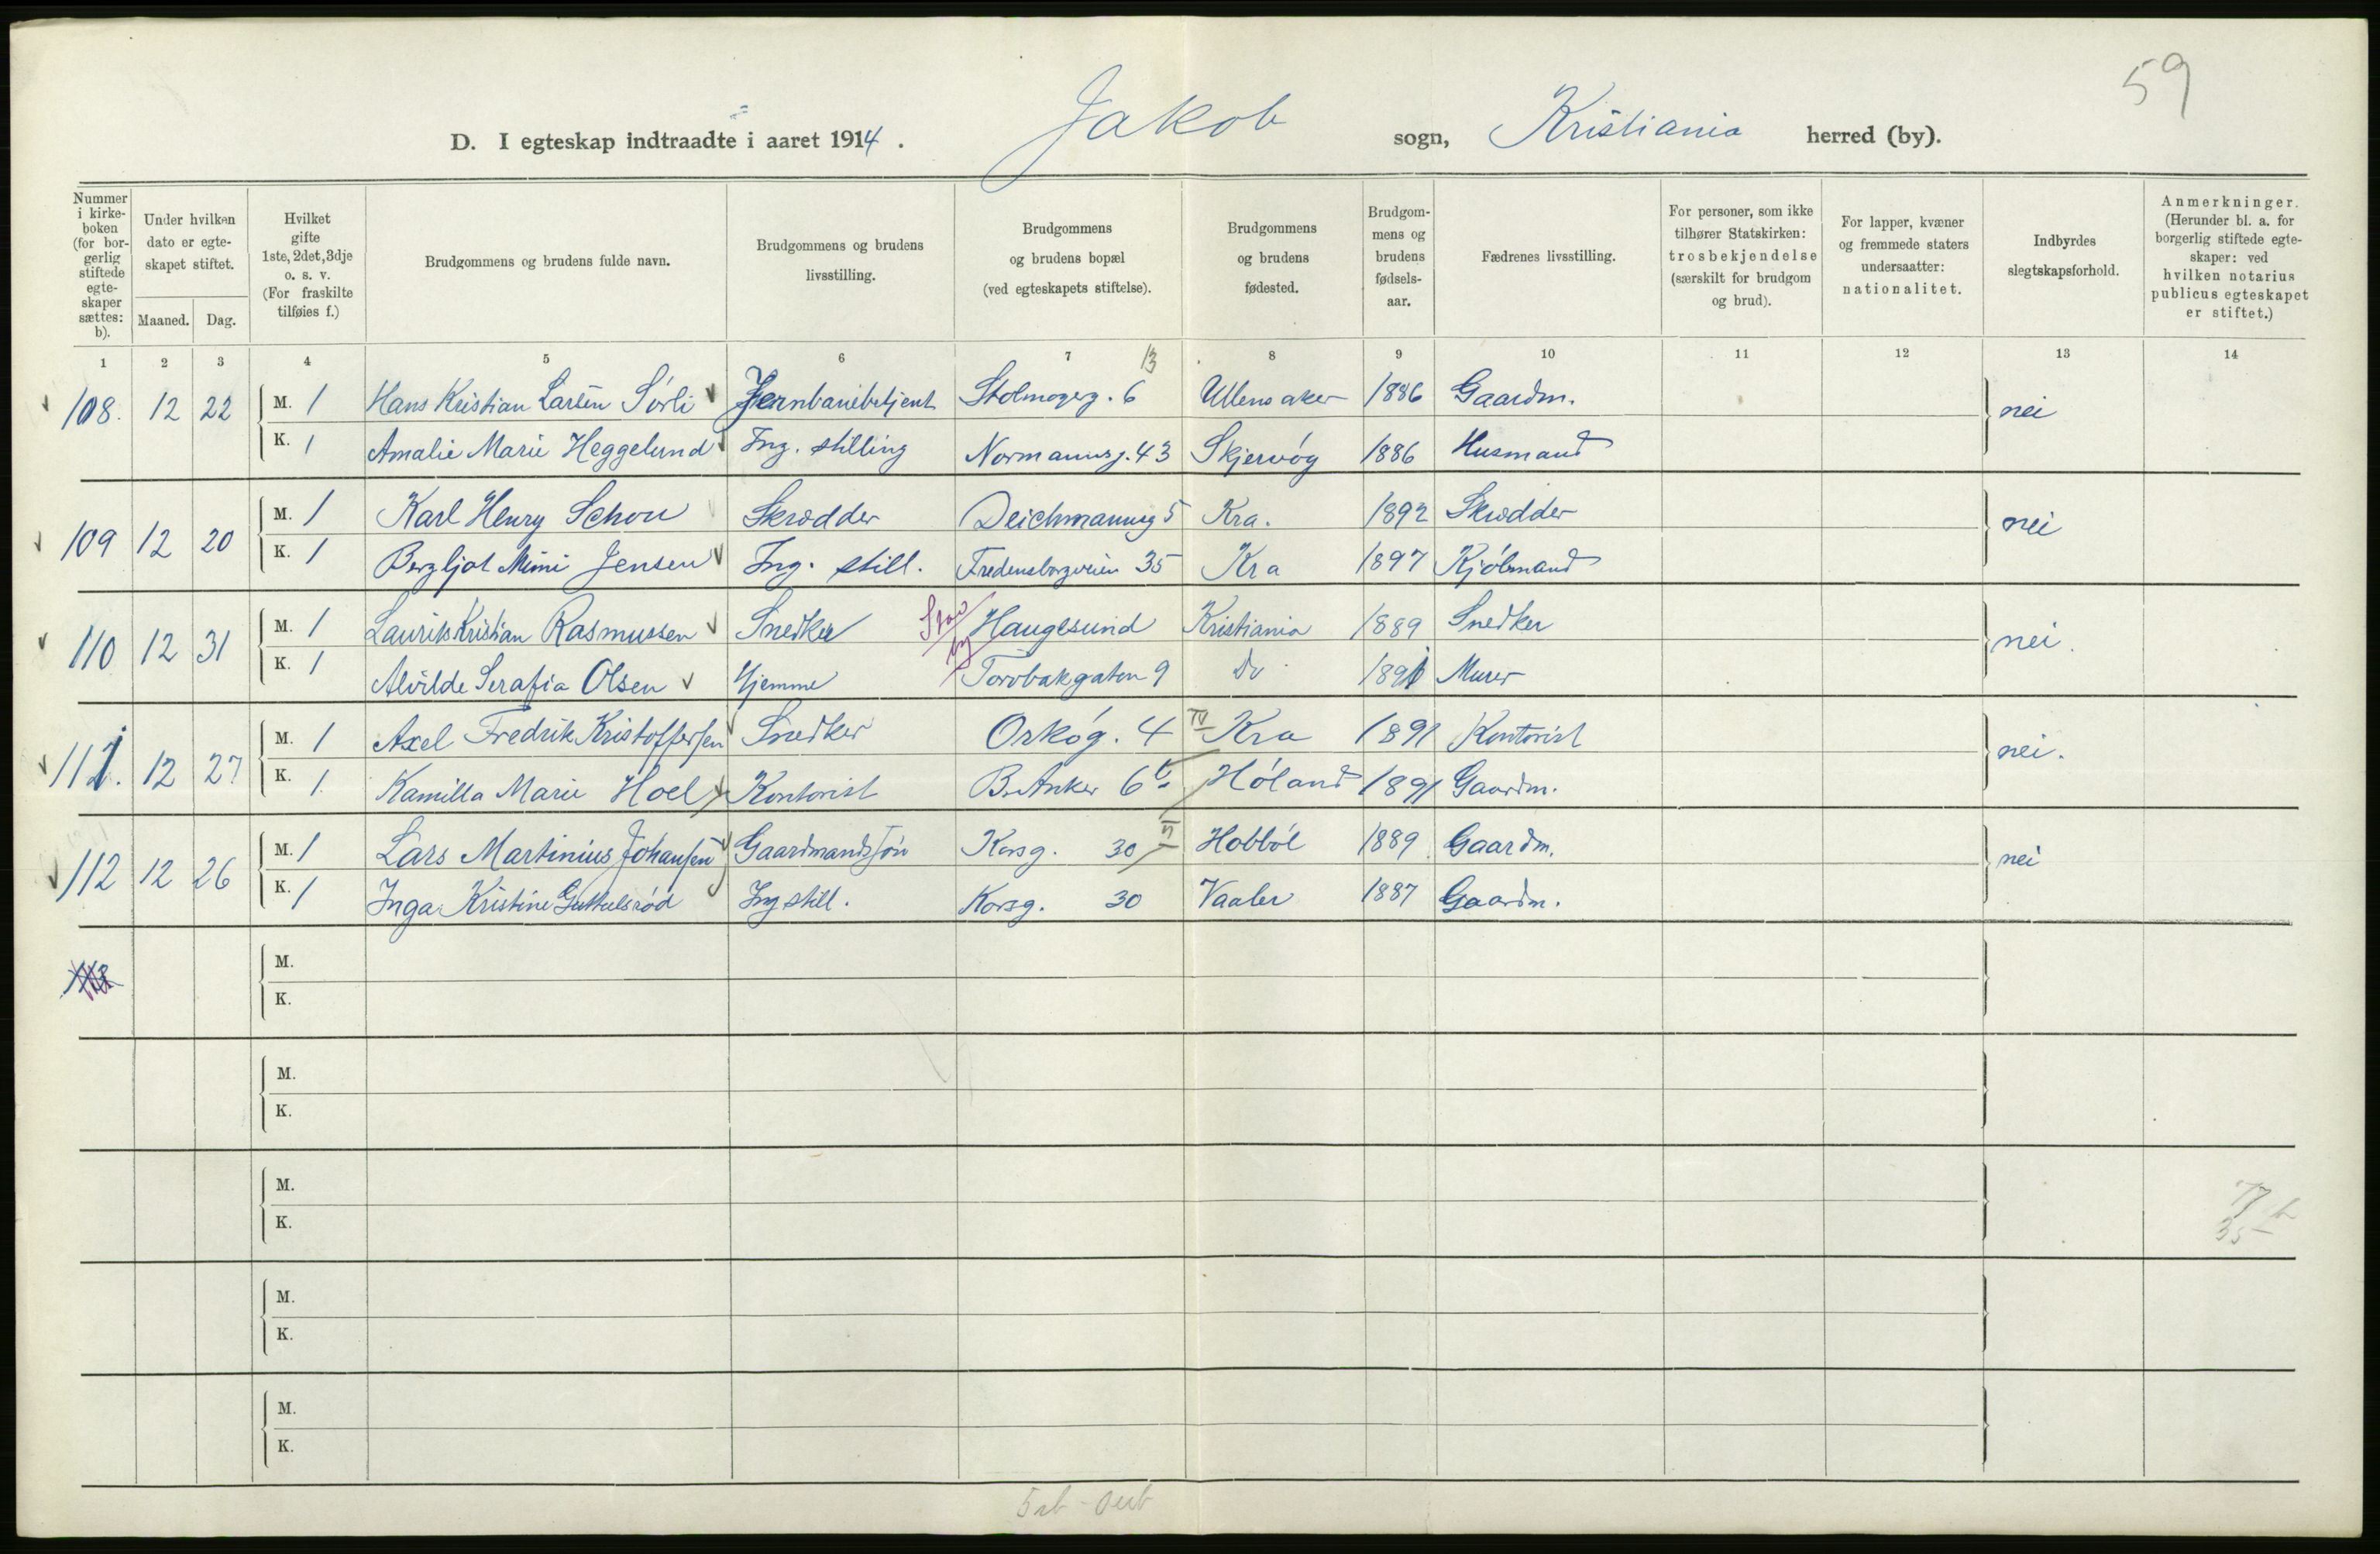 59
D. I egteskap indtraadte i aaret 1914. Jakob sogn, Kristiania herred (by).
Nummer i kirke-boken (for bor-gerlig stiftede egte-skaper sættes: b).
Under hvilken dato er egte-skapet stiftet.
Maaned. Dag.
Hvilket gifte 1ste, 2det, 3dje o. s. v. (For fraskilte tilføies f.)
Brudgommens og brudens fulde navn.
Brudgommens og brudens livsstilling.
Brudgommens og brudens bopæl (ved egteskapets stiftelse).
Brudgommens og brudens fødested.
Brudgom-mens og brudens fødsels-aar.
Fædrenes livsstilling.
For personer, som ikke tilhører Statskirken: trosbekjendelse (særskilt for brudgom og brud).
For lapper, kvæner og fremmede staters undersaatter: nationalitet.
Indbyrdes slegtskapsforhold.
Anmerkninger. (Herunder bl. a. for borgerlig stiftede egte-skaper: ved hvilken notarius publicus egteskapet er stiftet.)
1 2 3 4 5 6 7 8 9 10 11 12 13 14
13
108. 12 22 M. 1 Hans Kristian Larsen Sørli Jernbanebetjent Stolmagerg. 6 Ullensaker 1886 Gaardm. nei
K. 1 Amalie Marie Heggelund Ing. stilling Normannsg. 43 Skjervøy 1886 Husmand
109 12 20 M. 1 Karl Henry Schou Skrædder Deichmannsg 5 Kra. 1892 Skrædder nei
K. 1 Bergljot Mimi Jensen Ing. still. Fredensborgveien 35 Kra 1897 Kjøbmand
110 12 31 M. 1 Laurits Kristian Rasmussen Snedker Haugesund Kristiania 1889 Snedker nei.
K. 1 Alvilde Serafia Olsen Hjemme Torvbakgaten 9 Do 1891 Murer
111. 12 27 M. 1 Axel Fredrik Kristoffersen Snedker Orkøg. 4 IV Kra 1891 Kontorist nei.
K. 1. Kamilla Marie Hoel Kontorist B. Anker 6 b Høland 1891 Gaardm.
112 12 26 M. 1 Lars Martinius Johansen Gaardmandssøn Korsg. 30 VI Hobbøl 1889 Gaardm. nei
K. 1 Inga Kristine Guttulsrød Ing still. Korsg. 30 Vaaler 1887 Gaardm.
M.
K.
M.
K.
M.
K.
M.
K.
M.
K.